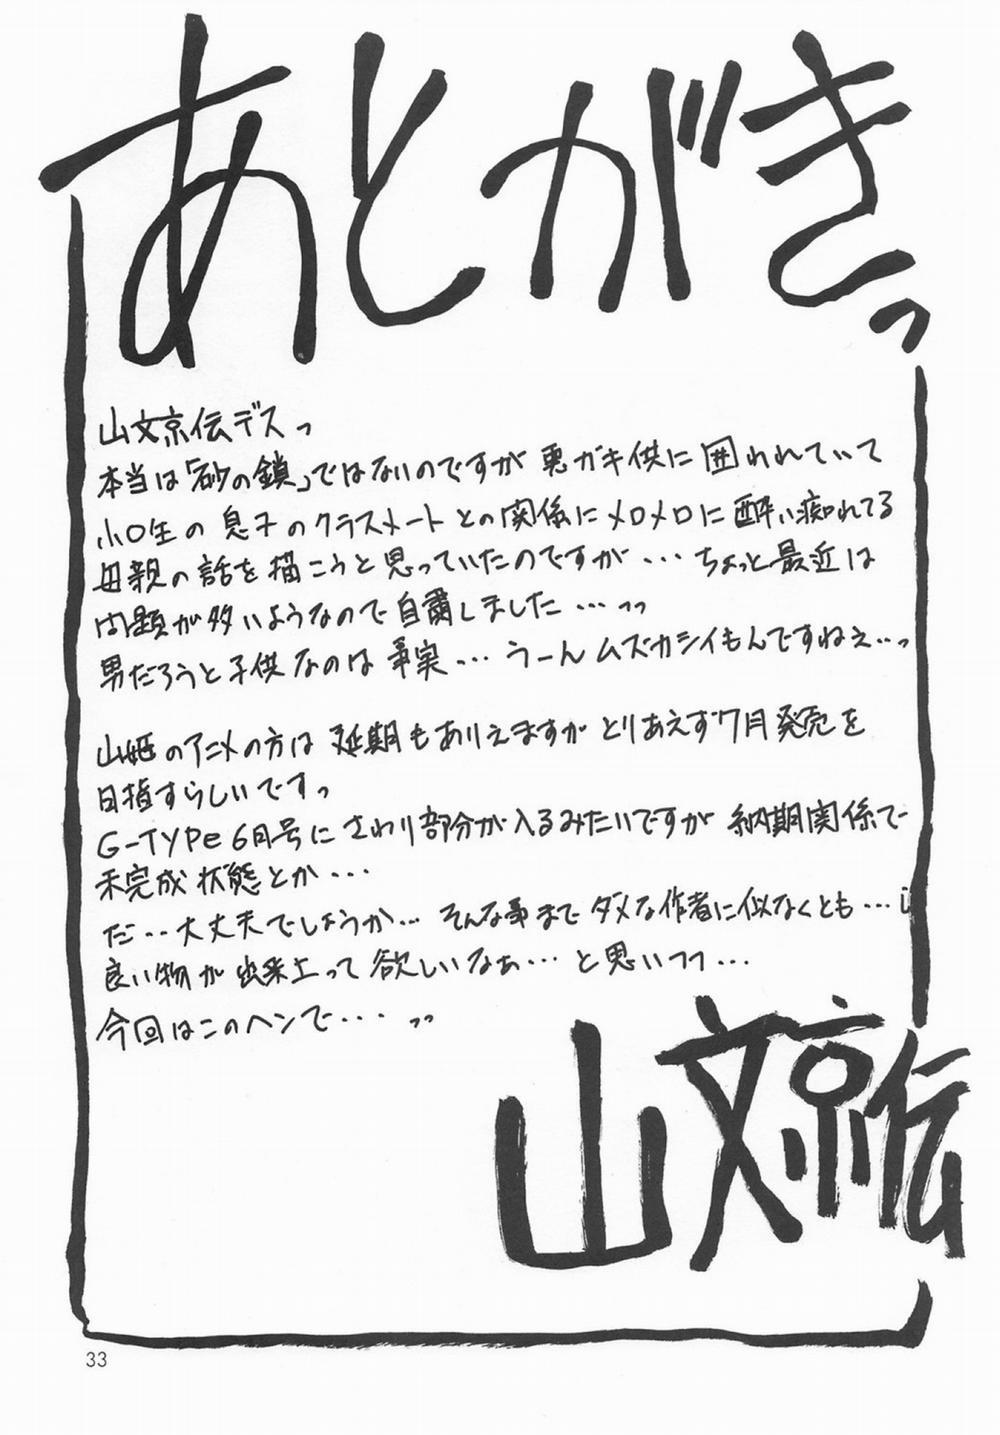 あとがきっ
山文京伝デスっ
本当は「砂の鎖」ではないのですが悪ガキ供に囲われていて
小○生の息子のクラスメートとの関係にメロメロに酔い痴れてる
母親の話を描こうと思っていたのですが・・・ちょっと最近は
問題が多いようなので自粛しました・・・っっ
男だろうと子供なのは事実・・・うーんムズカシイもんですねぇ・・・っ
山姫のアニメの方は延期もありえますがとりあえず7月発売を
目指すらしいですっ
G-TYPe6月号にさわり部分が入るみたいですが納期関係で
未完成状態とか・・・
だ・・大丈夫でしょうか・・・そんな事までダメな作者に似なくとも・・・
良い物が出来上って欲しいなぁ・・・と思いつつ・・・
今回はこのヘンで・・・っっ
山文京伝
33